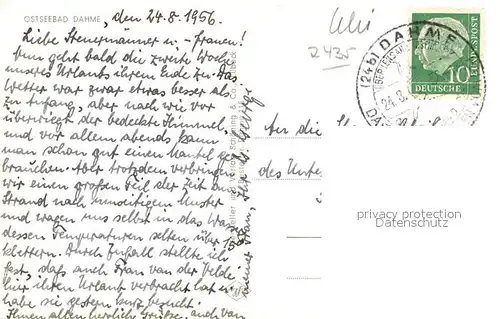 OSTSEEBAD DAHME, den 24.8.1956.
Liebe Steuermänner u. -frauen!
Nun geht bald die zweite Woche
unseres Urlaubs ihrem Ende zu. Das
Wetter war zwar etwas besser als
zu Anfang, aber nach wie vor
überwiegt der bedeckte Himmel,
und vor allem abends kann
man schon gut einen Mantel ge-
brauchen. Aber trotzdem verbringen
wir einen großen Teil der Zeit am
Strand nach Muster
und wagen uns selbst in das Was
dessen Temperaturen selten über
klettern. Durch Zufall stellte ich
fest, daß auch Frau van der Velde
hier ihren Urlaub verbracht hat u.
habe sie gestern kurz besucht.
Ihnen allen herzliche Grüße, auch von
meiner Frau, Ihr
2435
(24b) DAHME
24.8.
DEUTSCHE BUNDESPOST
10
An die
des Unte
privacy protection
Datenschutz